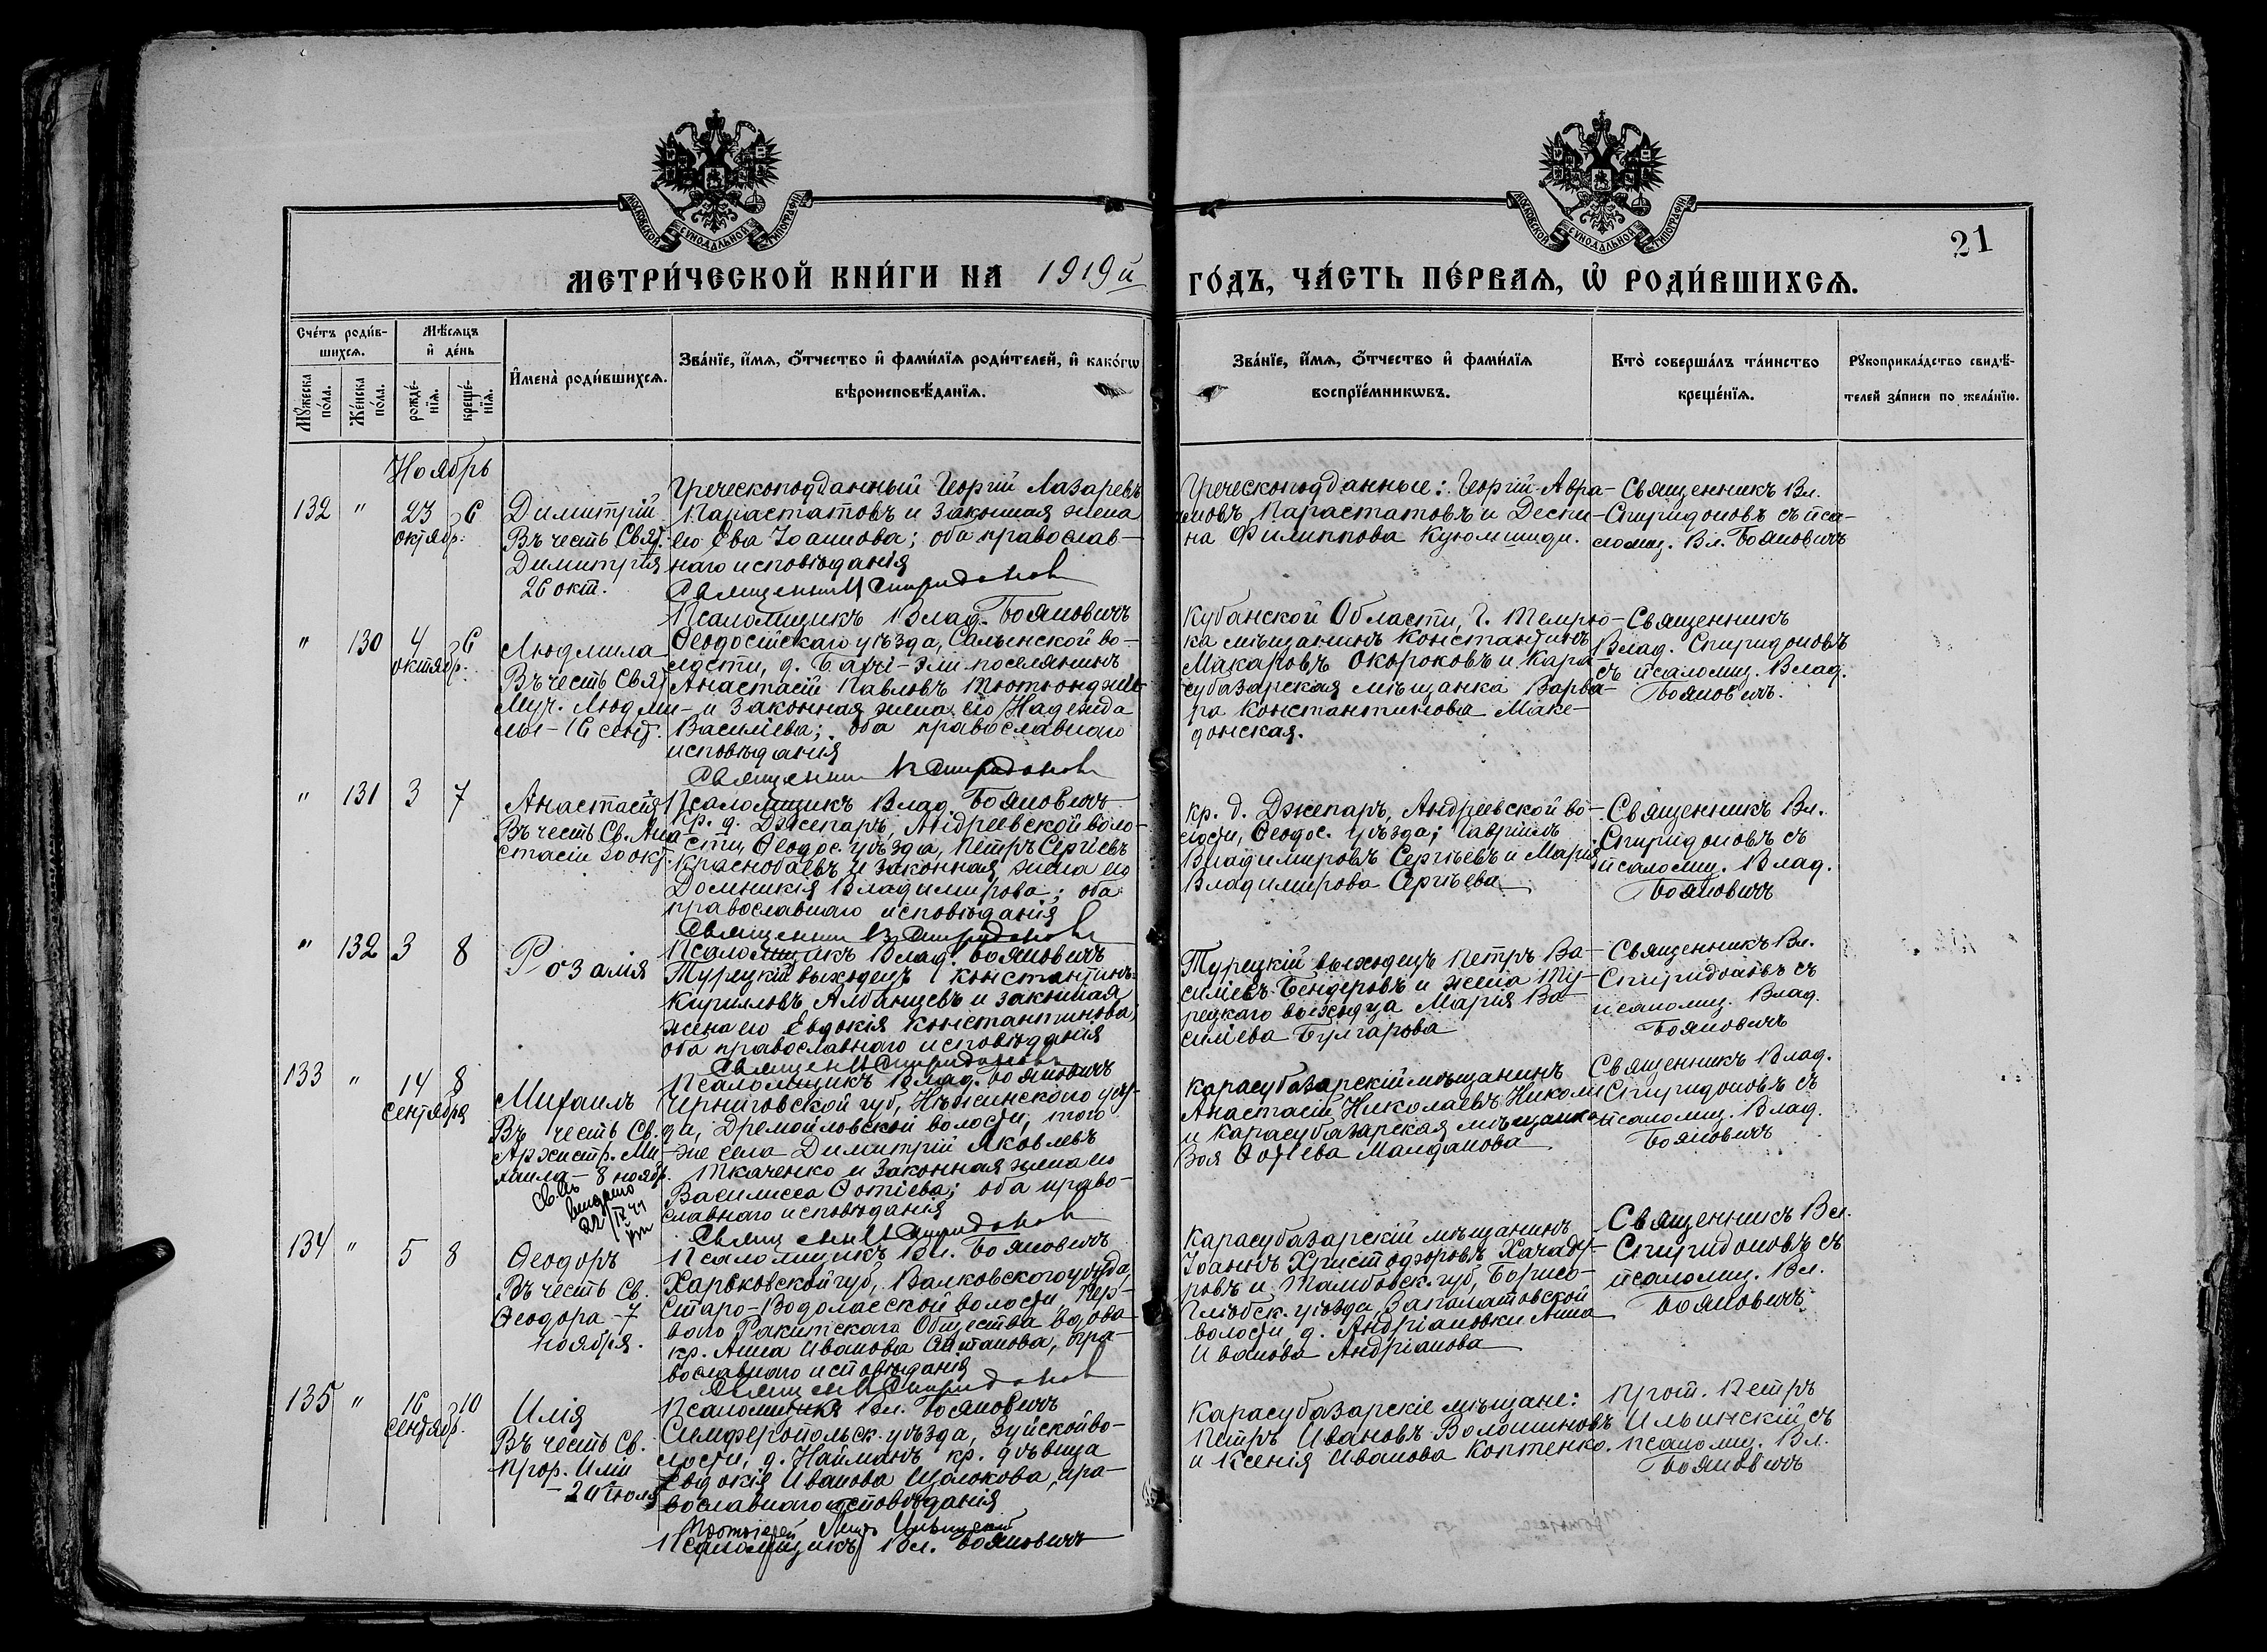 МОСКОВСКОЙ СѴНОДАЛЬНОЙ ТИПОГРАФІИ
МОСКОВСКОЙ СѴНОДАЛЬНОЙ ТИПОГРАФІИ
21
МЕТРИ́ЧЕСКОЙ КНИ́ГИ НА 1919й ГО́ДЪ, ЧА́СТЬ ПЕ́РВАѦ, Ѡ҆ РОДИ́ВШИХСѦ.
Сче́тъ роди́в-
шихсѧ.
Мꙋ́жеска
по́ла.
Же́нска
по́ла.
Мѣ́сѧцъ
и҆ де́нь
рожде́-
нїѧ.
креще́-
нїѧ.
И҆мена̀ роди́вшихсѧ.
Зва́нїе, и҆́мѧ, ѻ҆́тчество и҆ фами́лїѧ роди́телей, и҆ како́гѡ
вѣроисповѣ́данїѧ.
Зва́нїе, и҆́мѧ, ѻ҆́тчество и҆ фами́лїѧ
воспрїе́мникѡвъ.
Кто̀ соверша́лъ та́инство
креще́нїѧ.
Рꙋкоприкла́дство свидѣ́-
телей за́писи по жела́нїю.
Ноябрь
132 " 23 6
октябр.
Димитрій
Въ честь Свят.
Димитрія
26 окт.
Греческоподданный Георгій Лазаревъ
Парастатовъ и законная жена
его Ева Іоаннова; оба православ-
наго исповѣданія
Священникъ Спиридоновъ
Псаломщикъ Влад. Бояновичъ
Греческоподданные: Георгій Авра-
мовъ Парастатовъ и Деспи-
на Филиппова Куюмшиди.
Священникъ Вл.
Спиридоновъ съ пса-
ломщ. Вл. Бояновичъ
" 130 4 6
октябр.
Людмила
Въ честь Свят
Муч. Людми-
лы - 16 сент.
Ѳеодосійскаго уѣзда, Салынской во-
лости, д. Бахчи-Эли поселянинъ
Анастасій Павловъ Тютюнджи
и законная жена его Надежда
Васильева; оба православнаго
исповѣданія
Священник В Спиридоновъ
Псаломщикъ Влад. Бояновичъ
Кубанской Области, г. Темрю-
ка мѣщанинъ Константинъ
Макаровъ Окороковъ и Кара-
субазарская мѣщанка Варва-
ра Константинова Маке-
донская.
Священникъ
Влад. Спиридоновъ
съ псаломщ. Влад.
Бояновичъ.
" 131 3 7
Анастасія
Въ честь Св. Ана
стасіи 30 окт.
Кр. д. Джепаръ, Андреевской воло-
сти, Ѳеодос. уѣзда, Петръ Сергѣевъ
Краснобаевъ и законная жена его
Домникія Владимирова; оба
православнаго исповѣданія
Священник В Спиридоновъ
Псаломщикъ Влад. Бояновичъ
Кр. д. Джепаръ, Андреевской во-
лости, Ѳеодос. уѣзда; Гавріилъ
Владимировъ Сергѣевъ и Марія
Владимирова Сергѣева
Священникъ Вл.
Спиридоновъ съ
псаломщ. Влад.
Бояновичъ
" 132 3 8
Розалія
Турецкій выходецъ Константинъ
Кирилловъ Албанцевъ и законная
жена его Евдокія Константинова,
оба православнаго исповѣданія
Священ В Спиридоновъ
Псаломщикъ Влад. Бояновичъ
Турецкій выходецъ Петръ Ва-
силіевъ Бендеровъ и жена ту-
рецкаго выходца Марія Ва-
силіева Булгарова
Священникъ Вл.
Спиридоновъ съ
псаломщ. Влад.
Бояновичъ
133 " 14 8
сентября
Михаилъ
Въ честь Св.
Архистр. Ми-
хаила - 8 ноябр.
Св. въ
выдано
22/IX 41
Черниговской губ, Нѣжинскаго уѣз-
да, Дремайловской волости, того
же села Димитрій Яковлевъ
Ткаченко и законная жена его
Василисса Фотіева; оба право-
славнаго исповѣданія
Священ В Спиридоновъ
Псаломщикъ Вл. Бояновичъ
Карасубазарскій мѣщанинъ
Анастасій Николаевъ Николи
и Карасубазарская мѣщанка
Зоя Фотіева Малданова
Священникъ Влад.
Спиридоновъ съ
псаломщ. Влад.
Бояновичъ
134 " 5 8
Ѳеодоръ
Въ честь Св.
Ѳеодора - 7
ноября.
Харьковской губ, Валковскаго уѣзда,
Старо-Водолаеской волости, Пер-
ваго Ракитскаго Общества вдова
кр. Анна Иванова, пра-
вославнаго исповѣданія
Священ В Спиридоновъ
Псаломщикъ Вл. Бояновичъ
Карасубазарскій мѣщанинъ
Іоаннъ Христофоровъ Хачаду-
ровъ и Тамбовск. губ, Борисо-
глѣбск. уѣзда, Запалатовской
волости, д. Андріановки Анна
Иванова Андріанова
Священникъ Вл.
Спиридоновъ съ
псаломщ. Вл.
Бояновичъ
135 " 16 10
сентябр.
Илія
Въ честь Св.
Прор. Иліи
- 20 іюля
Симферопольск. уѣзда, Зуйской во-
лости, д. Найманъ кр. дѣвица
Евдокія Иванова Щолокова, пра-
вославнаго исповѣданія
Протоіерей Петръ Ильинскій
Псаломщикъ Вл. Бояновичъ
Карасубазарскіе мѣщане:
Петръ Ивановъ Волошиновъ
и Ксенія Иванова Коптенко.
Прот. Петръ
Ильинскій съ
псаломщ. Вл.
Бояновичъ